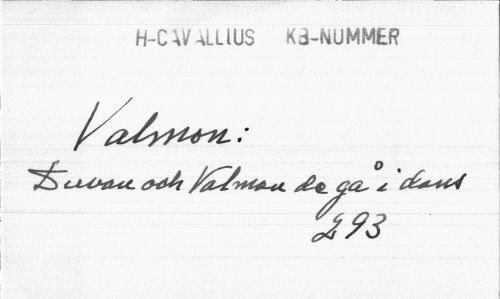 H-CAVALLIUS KB-NUMMER
Valmon:
Duvan och Valmon de gå i dans
293